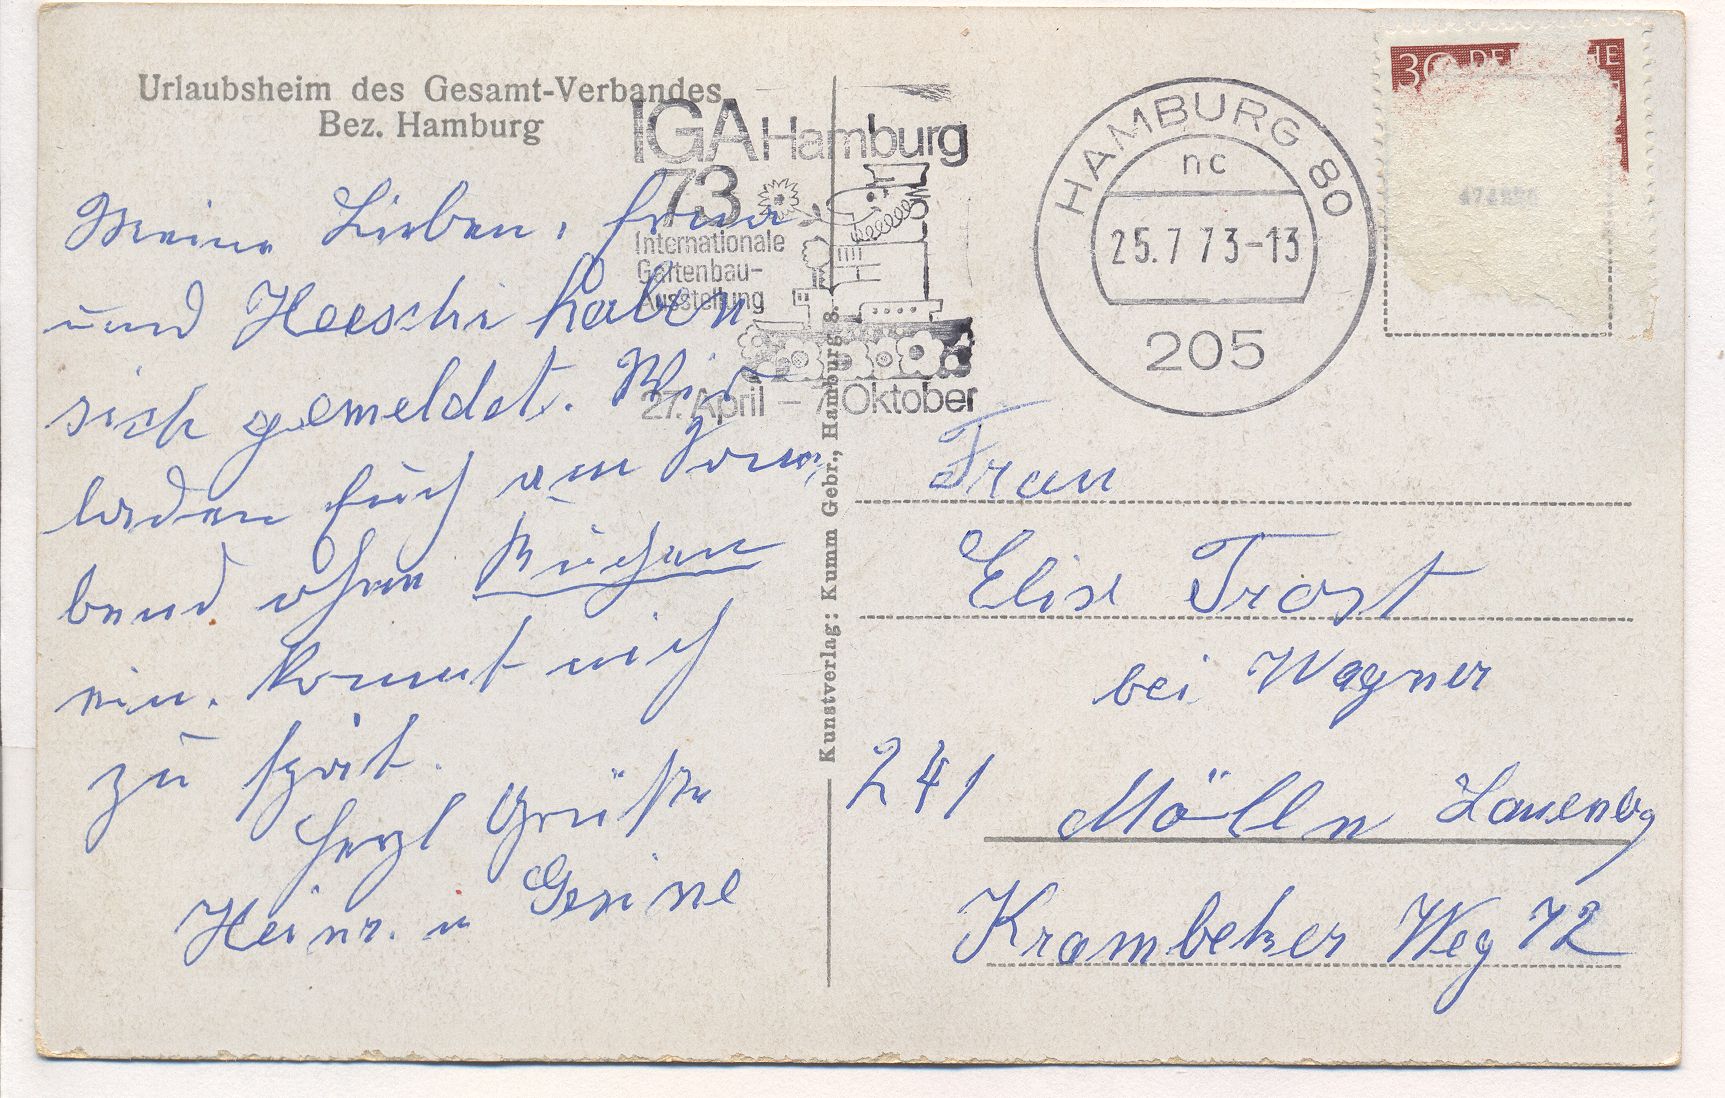 Urlaubsheim des Gesamt-Verbandes
Bez. Hamburg
IGA Hamburg
73
Internationale
Gartenbau-
Ausstellung
27. April – 7. Oktober
HAMBURG 80
nc
25.7.73-13
205
30 DEUTSCHE
Meine Lieben,
und Heeschi haben
sich gemeldet. Wir
laden Euch am Sonn
bend ohne Kuchen
ein. Kommt nich
zu spät.
Herzl Grüße
Heinr. u Gesine
Kunstverlag: Kumm Gebr., Hamburg 8.
Frau
Elise Trost
bei Wagner
241 Mölln Lauenbg
Krambeker Weg 72